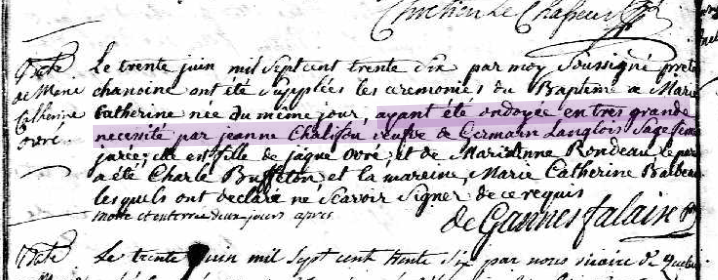 Chrétien Le Chasseur
Bate Le trente juin mil Sept cent trente Six par moy Soussigné pretre
de Marie chanoine ont été Suppléés les ceremonies du Baptême a Marie
Catherine Catherine née du même jour, ayant été ondoyée en tres grande
ovré. necessité par jeanne Chalifou veufve de Germain Langlois Sage feme
jurée; elle est fille de jaque ovré; et de Marianne Rondeau le parein
a été Charle et la mareine, Marie Catherine
lesquels ont declaré ne Scavoir Signer de ce requis
morte et enterrée deux jours apres
de Gannes falaise
Bate Le trente juin mil Sept cent trente Six par nous vicaire de quebec